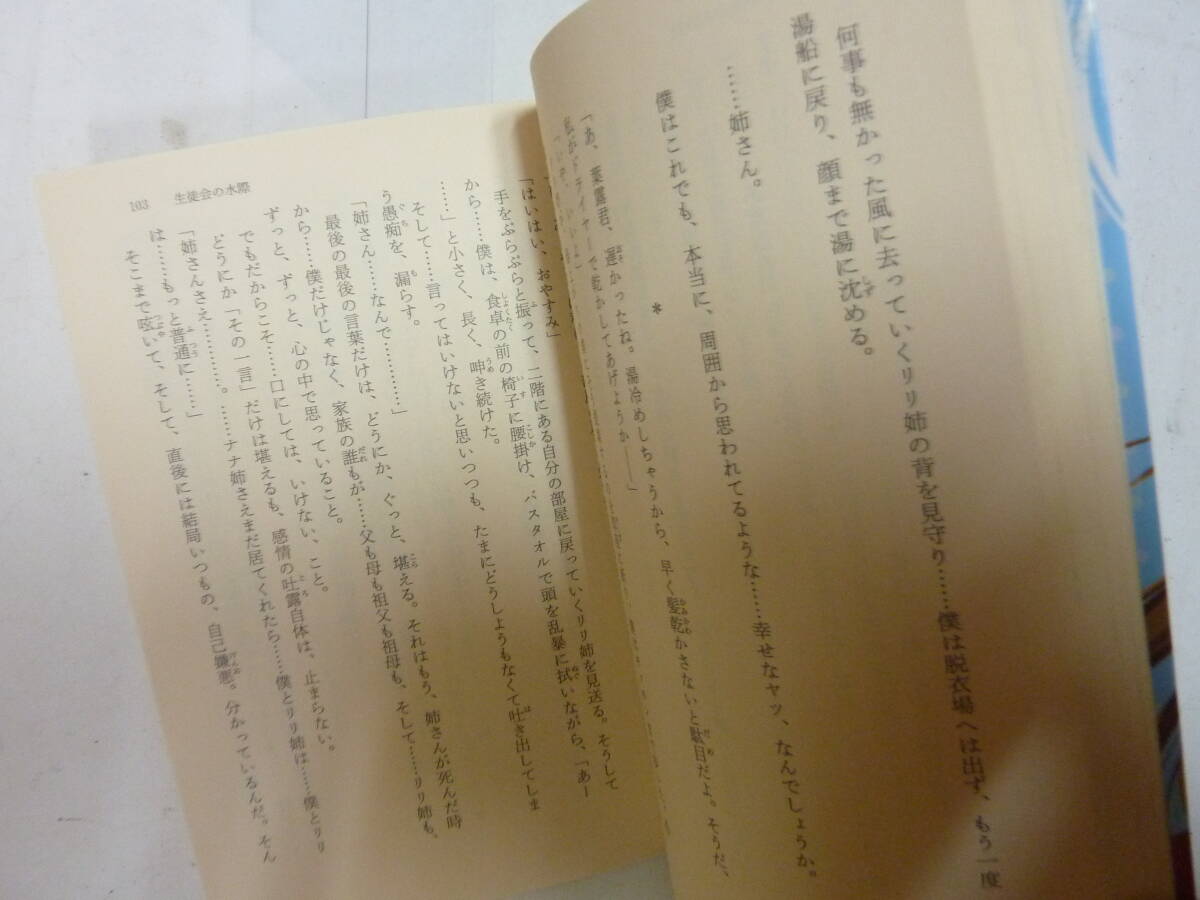 何事も無かった風に去っていくリリ姉の背を見守り……僕は脱衣場へは出ず、もう一度
湯船に戻り、顔まで湯に沈める。
……姉さん。
僕はこれでも、本当に、周囲から思われてるような……幸せなヤツ、なんでしょうか。
*
「あ、葉露君、遅かったね。湯冷めしちゃうから、早く髪乾かさないと駄目だよ。そうだ、
私がドライヤーで乾かしてあげようか――」
「いや、いいよ」
「はいはい、おやすみ」
手をぷらぷらと振って、二階にある自分の部屋に戻っていくリリ姉を見送る。そうして
から……僕は、食卓の前の椅子に腰掛け、バスタオルで頭を乱暴に拭いながら、「あー
……」と小さく、長く、呻き続けた。
そして……言ってはいけないと思いつつも、たまにどうしようもなくて吐き出してしま
う愚痴を、漏らす。
「姉さん……なんで…………」
最後の最後の言葉だけは、どうにか、ぐっと、堪える。それはもう、姉さんが死んだ時
から……僕だけじゃなく、家族の誰もが……父も母も祖父も祖母も、そして……リリ姉も、
ずっと、ずっと、心の中で思っていること。
でもだからこそ……口にしては、いけない、こと。
どうにか「その一言」だけは堪えるも、感情の吐露自体は、止まらない。
「姉さんさえ…………。……ナナ姉さえまだ居てくれたら……僕とリリ姉は……僕とリリ
は……もっと普通に……」
そこまで呟いて、そして、直後には結局いつもの、自己嫌悪。分かっているんだ。そん
103 生徒会の水際